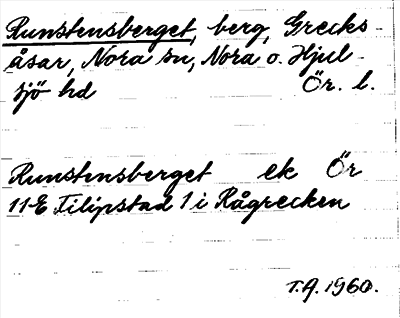 Runstensberget, berg, Grecks-
åsar, Nora sn, Nora o. Hjul-
sjö hd Ör. l.
Runstensberget ek Ör
11-E Filipstad 1 i Rågrecken
T.A. 1960.